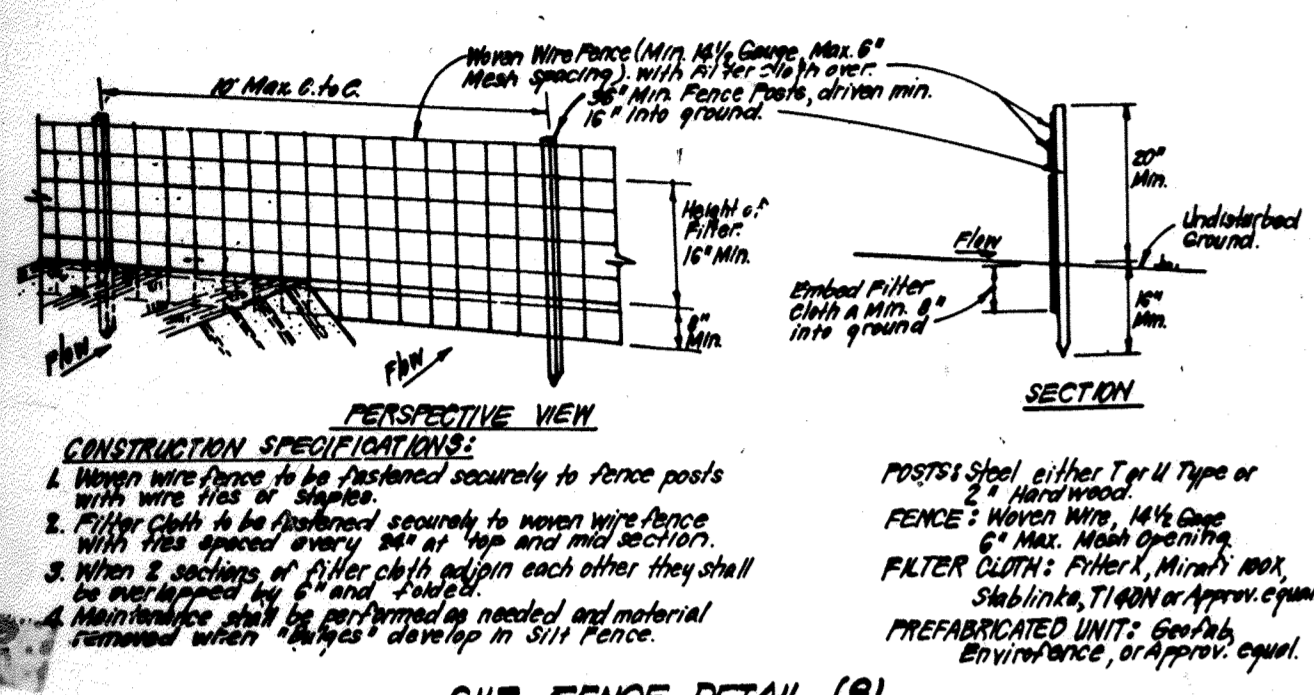 Woven Wire Fence (Min. 14½ Gauge, Max. 6"
Mesh spacing) with Filter cloth over.
36" Min. Fence Posts, driven min.
16" into ground.
10' Max C. to C.
Height of
Filter.
16" Min.
8"
Min.
Flow
Flow
PERSPECTIVE VIEW
20"
Min.
Undisturbed
Ground.
Flow
Embed Filter
Cloth a Min. 8"
into ground
16"
Min.
SECTION
CONSTRUCTION SPECIFICATIONS:
1. Woven wire fence to be fastened securely to fence posts
with wire ties or staples.
2. Filter Cloth to be fastened securely to woven wire fence
with ties spaced every 24" at top and mid section.
3. When 2 sections of filter cloth adjoin each other they shall
be overlapped by 6" and folded.
4. Maintenance shall be performed as needed and material
removed when "Bulges" develop in Silt Fence.
POSTS: Steel either T or U Type or
2" Hardwood.
FENCE: Woven Wire, 14½ Gage
6" Max. Mesh Opening
FILTER CLOTH: Filter X, Mirafi 100X,
Stablinka, T140N or Approv. equal
PREFABRICATED UNIT: Geofab,
Envirofence, or Approv. equal.
SILT FENCE DETAIL (8)